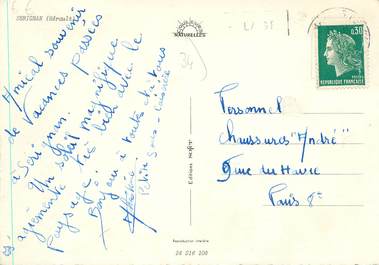 SERIGNAN (Hérault)
Amical souvenir
de Vacances passées
à Serignan
Un soleil magnifique
agrémente très bien le
Paysage.
Bonjour à toutes et à tous
NATURELLES
34
Editions
Reproduction interdite
34 216 208
0,30
REPUBLIQUE FRANÇAISE
POSTES
Personnel
Chaussures "André"
Rue du Havre
Paris 8e